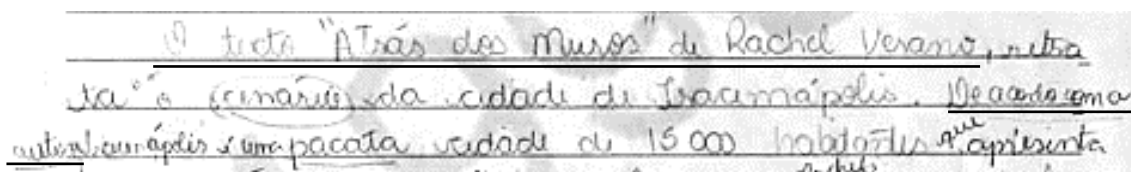 O texto "Atrás dos Muros" de Rachel Verano, retra
ta o cenário da cidade de Iracemápolis. De acordo com a
autora Iracemápolis é uma pacata cidade de 15 000 habitantes que apresenta
Rachel